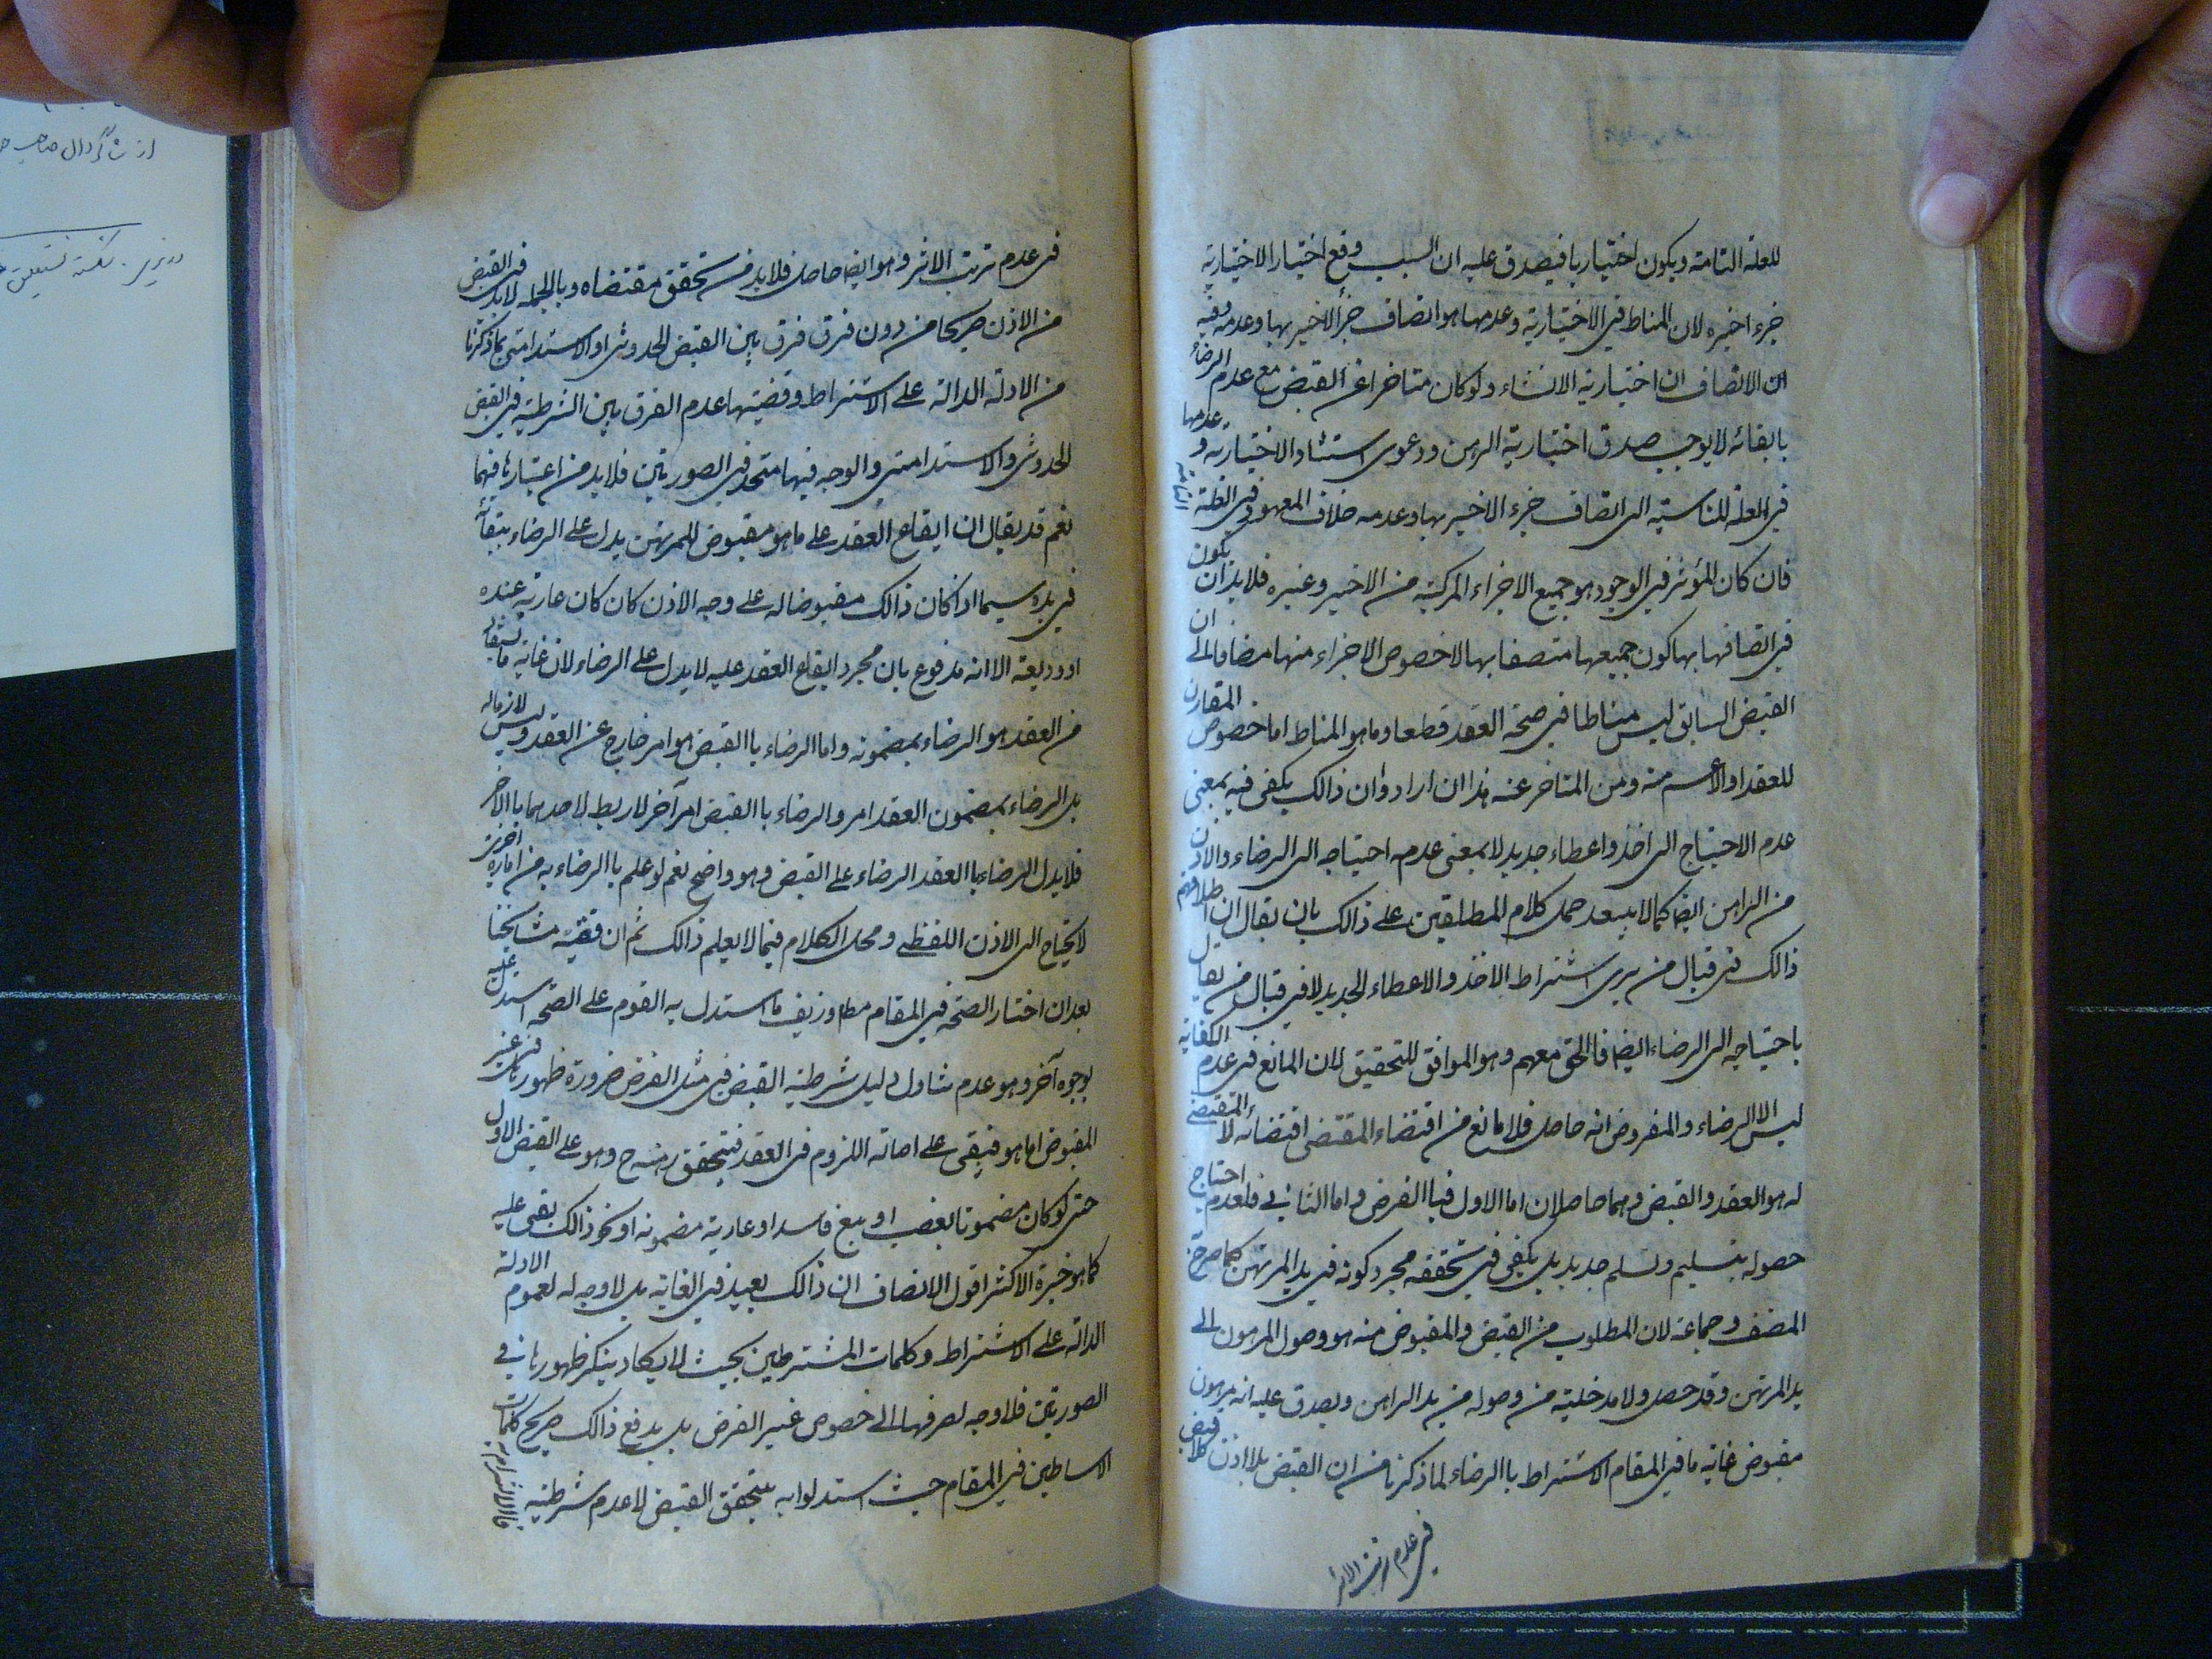 للعلة التامة ويكون اختياريا فيصدق عليه ان السبب وقع اختيار الاختيارية
جزء اخيره لان المناط في الاختيارية وعدمها هو اتصاف جزء الاخير بها وعدمه وفيه
ان الانصاف ان اختيارية الانشاء ولو كان متاخرا عن القبض مع عدم الرضاء
بابقائه لا يوجب صدق اختيارية الرهن ودعوى استناد الاختيارية وعدمها
في العلة المناسبة الى اتصاف جزء الاخير بها وعدمه خلاف المعهود في العلة التامة
فان كان المؤثر في الوجود هو جميع الاجزاء المركبة من الاخير وغيره فلا بد ان يكون
في اتصافها بها كون جميعها متصفا بها لا خصوص الاجزاء منها مضافا الى ان
القبض السابق ليس مناطا في صحة العقد قطعا وما هو المناط اما خصوص المقارن
للعقد او الاعم منه ومن المتاخر عنه هذا ان ارادوا ان ذالك يكفى فيه بمعنى
عدم الاحتياج الى اخذ واعطاء جديد لا بمعنى عدم احتياجه الى الرضاء والاذن
من الراهن ايضا كما لا يبعد حمل كلام المطلقين على ذالك بان يقال ان اطلاقهم
ذالك في قبال من يرى اشتراط الاخذ والاعطاء الجديد لا في قبال من يقال
باحتياجه الى الرضاء ايضا فالحق معهم وهو الموافق للتحقيق لان المانع في عدم الكفاية
ليس الا الرضاء والمفروض انه حاصل فلا مانع من اقتضاء المقتضى اقتضائه لا المقتضى
له هو العقد والقبض وهما حاصلان اما الاول فبا الفرض واما الثاني فلعدم احتياج
حصوله بتسليم وتسلم جديد بل يكفى في تحققه مجرد كونه في يد المرتهن كما صرح
المصنف وجماعة لان المطلوب من القبض والمقبوض منه هو وصول المرهون الى
يد المرتهن وقد حصل ولا مدخلية من وصوله من يد الراهن ويصدق عليه انه مرهون
مقبوض غاية ما في المقام الاشتراط با الرضاء لما ذكرنا من ان القبض بلا اذن كلا قبض
في عدم ترتب الاثر
في عدم ترتب الاثر وهو ايضا حاصل فلا بد من تحقق مقتضاه وبالجملة لا بد في القبض
من الاذن صريحا من دون فرق فرق بين القبض الحدوثى او الاستدامتى لما ذكرنا
من الادلة الدالة على الاشتراط وقضيتها عدم الفرق بين الشرطية في القبض
الحدوثى والاستدامتى والوجه فيها متحد في الصورتين فلا بد من اعتبارها فيهما
نعم قد يقال ان ايقاع العقد على ما هو مقبوض للمرتهن يدل على الرضاء ببقائه
في يده سيما اذا كان ذالك مقبوضا له على وجه الاذن كان كان عارية عنده
او وديعة الا انه مدفوع بان مجرد ايقاع العقد عليه لا يدل على الرضاء لان غاية ما يستفاد
من العقد هو الرضاء بمضمونه واما الرضاء با القبض هو امر خارج عن العقد وليس لازما له
بل الرضاء بمضمون العقد امر والرضاء با القبض امر آخر لا ربط لاحدهما با الاخر
فلا يدل الرضاء با العقد الرضاء على القبض وهو واضح نعم لو علم با الرضاء به من امارة اخرى
لا يحتاج الى الاذن اللفظى ومحل الكلام فيما لا يعلم ذالك ثم ان فقيه مشايخنا
بعد ان اختار الصحة في المقام مطا وزيف ما استدل به القوم على الصحة استدل عليه
بوجوه آخر وهو عدم تناول دليل شرطية القبض في مثل الفرض ضرورة ظهورها في غير
المقبوض اما هو فيبقى على اصالة اللزوم في العقد فيتحقق رهنه ح وهو على القبض الاول
حتى لو كان مضمونا بغصب او بيع فاسد او عارية مضمونة او نحو ذالك بقى عليه
كما هو خيرة الاكثر اقول الانصاف ان ذالك بعيد في الغاية بل لا وجه له لعموم الادلة
الدالة على الاشتراط وكلمات المشترطين بحيث لا يكاد ينكر ظهورها في
الصورتين فلا وجه لصرفها الى خصوص غير الفرض بل يدفع ذالك صريح كلمات
الاساطين في المقام حيث استدلوا به بتحقق القبض لا عدم شرطية